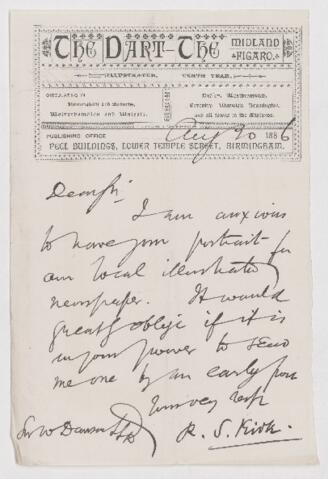 THE DART-THE MIDLAND
FIGARO.
ILLUSTRATED. TENTH YEAR.
CIRCULATING IN
Birmingham and Suburbs,
Wolverhampton and Walsall,
Dudley, Wednesbury,
Coventry, Warwick, Leamington,
and all towns in the Midlands.
Aug 20 1886
PUBLISHING OFFICE
PECK BUILDINGS, LOWER TEMPLE STREET, BIRMINGHAM.
Dear Sir
I am anxious
to have your portrait for
our local illustrated
newspaper. It would
greatly oblige if it is
in your power to send
me one by an early post
Yours very resp
Sir W Dawson
R. S. Kirk.